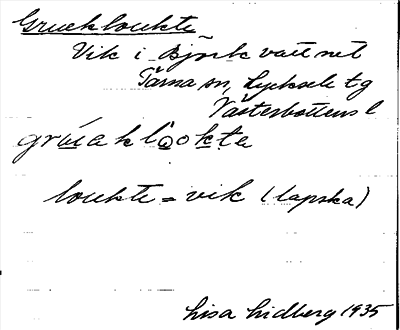 Gruekloukte
Vik i Björkvattnet
Tärna sn, Lycksele tg
Västerbottens l
grúaklǫokta
loukte = vik (lapska)
Lisa Lidberg 1935